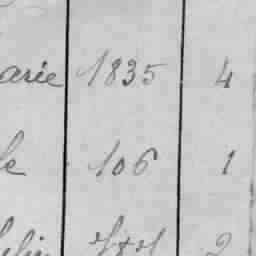 arie 1835 4
le 106 1
2